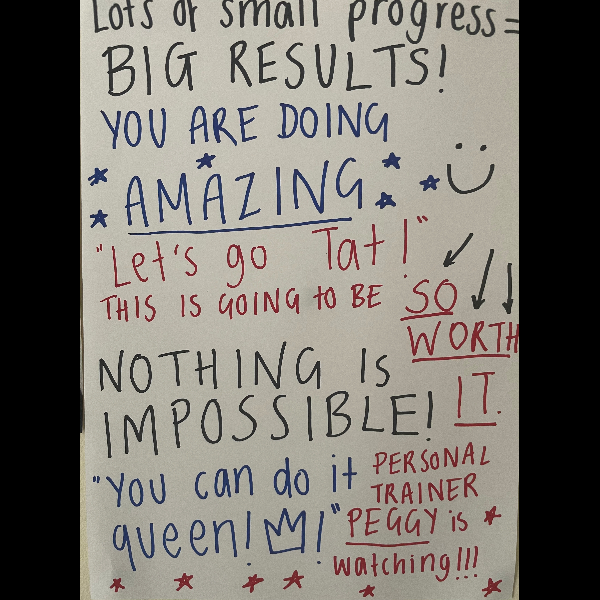 Lots of small progress =
BIG RESULTS!
YOU ARE DOING
AMAZING
"Let's go Tat!"
THIS IS GOING to BE SO
WORTH
IT.
NOTHING IS
IMPOSSIBLE!
"You can do it
queen! !"
PERSONAL
TRAINER
PEGGY is
watching!!!